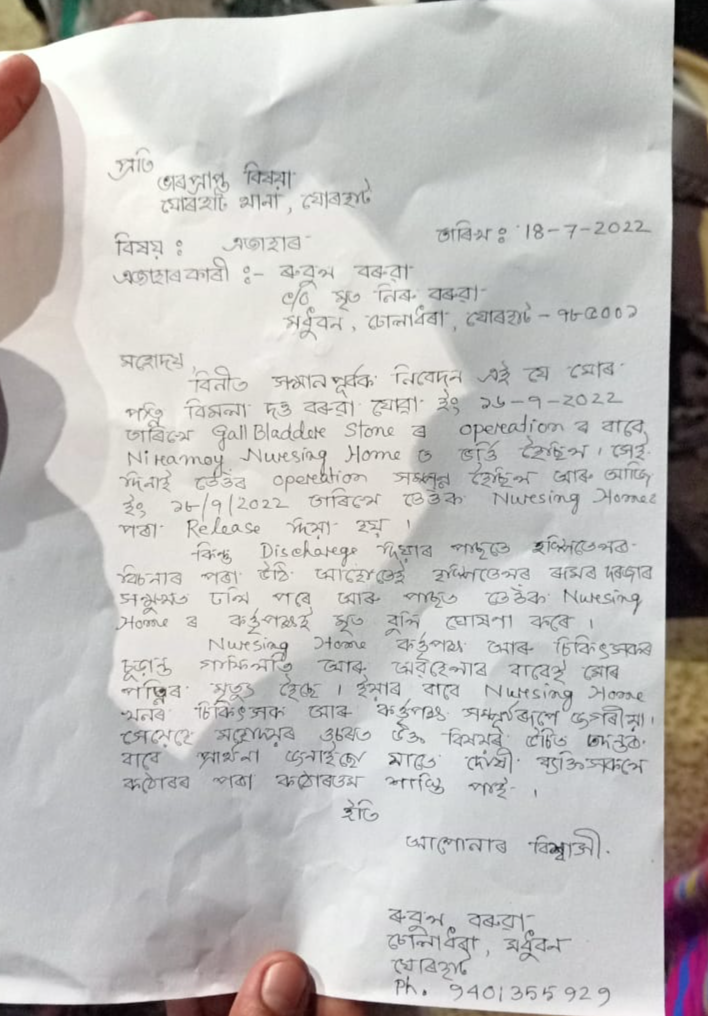 প্ৰতি
ভাৰপ্ৰাপ্ত বিষয়া
যোৰহাট থানা, যোৰহাট
তাৰিখ : 18-7-2022
বিষয় : এজাহাৰ
এজাহাৰকাৰী :- ৰুবুল বৰুৱা
c/o মৃত নিৰু বৰুৱা
মধুবন, ঢোলাধৰা, যোৰহাট - ৭৮৫০০১
মহোদয়,
বিনীত সন্মানপূৰ্বক নিবেদন এই যে মোৰ
পত্নি বিমলা দত্ত বৰুৱা যোৱা ইং ১৬-৭-2022
তাৰিখে Gall Bladder Stone ৰ operation ৰ বাবে
Niramoy Nursing Home ত ভৰ্ত্তি হৈছিল। সেই
দিনাই তেওঁৰ operation সম্পন্ন হৈছিল আৰু আজি
ইং ১৮/৭/2022 তাৰিখে তেওঁক Nursing Homeৰ
পৰা Release দিয়া হয়।
কিন্তু Discharege দিয়াৰ পাছতে হস্পিতেলৰ
বিচনাৰ পৰা উঠি আহোতেই হস্পিতেলৰ ৰুমৰ দৰজাৰ
সন্মুখত ঢলি পৰে আৰু পাছত তেওঁক Nursing
Home ৰ কৰ্ত্তৃপক্ষই মৃত বুলি ঘোষণা কৰে।
Nursing Home কৰ্ত্তৃপক্ষ আৰু চিকিৎসকৰ
চূড়ান্ত গাফিলতি আৰু অৱহেলাৰ বাবেই মোৰ
পত্নিৰ মৃত্যু হৈছে। ইয়াৰ বাবে Nursing Home
খনৰ চিকিৎসক আৰু কৰ্ত্তৃপক্ষ সম্পূৰ্ণৰূপে জগৰীয়া।
সেয়েহে মহোদয়ৰ ওচৰত উক্ত বিষয়ৰ উচিত তদন্তৰ
বাবে প্ৰাৰ্থনা জনাইছো যাতে দোষী ব্যক্তিসকলে
কঠোৰৰ পৰা কঠোৰতম শাস্তি পাই।
ইতি
আপোনাৰ বিশ্বাসী.
ৰুবুল বৰুৱা
ঢোলাধৰা, মধুবন
যোৰহাট
Ph. 9401355929